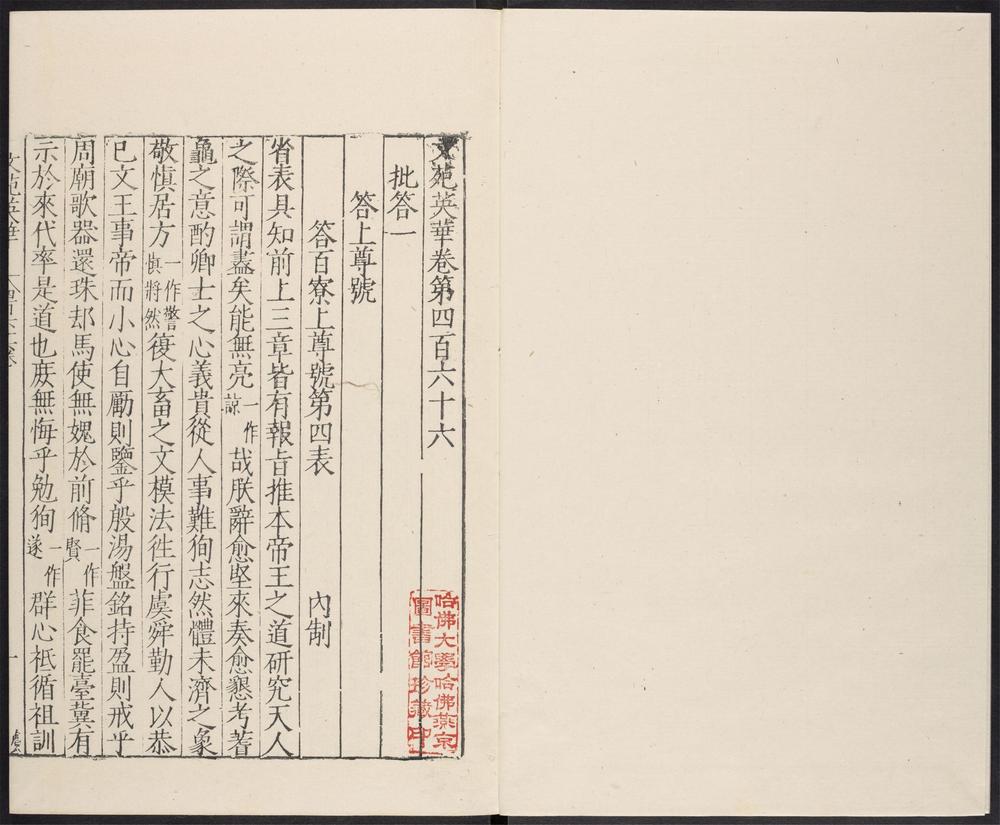 文苑英華卷第四百六十六
批答一
答上尊號
答百寮上尊號第四表 內制
省表具知前上三章皆有報旨推本帝王之道研究天人
之際可謂盡矣能無亮一作諒哉朕辭愈堅來奏愈懇考蓍
龜之意酌卿士之心義貴從人事難狥志然體未濟之象
敬慎居方一作警慎將然復大畜之文模法徃行虞舜勤人以恭
已文王事帝而小心自勵則鑒乎殷湯盤銘持盈則戒乎
周廟歌器還珠却馬使無媿於前脩一作賢菲食罷臺冀有
示於來代率是道也庶無悔乎勉狥一作遂群心祇循祖訓
一
哈佛大學哈佛燕京
圖書館珍藏印